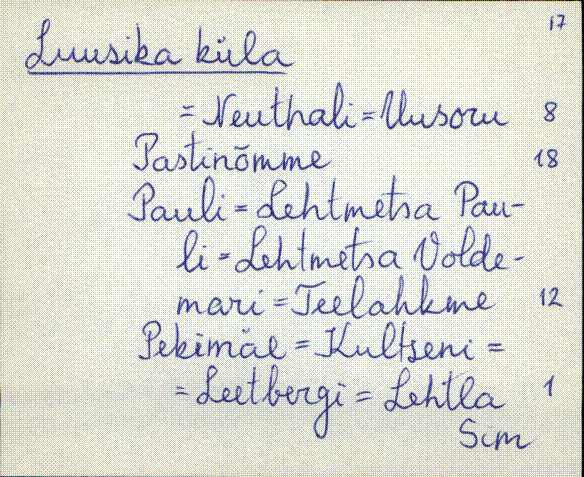 17
Luusika küla
= Neuthali = Uusoru 8
Pastinõmme 18
Pauli = Lehtmetsa Pau-
li = Lehtmetsa Volde-
mari = Teelahkme 12
Pekimäe = Kultseni =
= Leetbergi = Lehtla 1
Sim